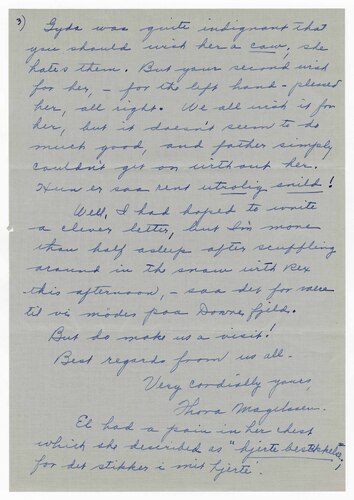 3) Gyda was quite indignant that
you should wish her a cow, she
hates them. But your second wish
for her, – for the left hand – pleased
her, all right. We all wish it for
her, but it doesn't seem to do
much good, and father simply
couldn't get on without her.
Hun er saa rent utrolig snild!
Well, I had hoped to write
a clever letter, but I'm more
than half asleep after scuffling
around in the snow with Rex
this afternoon, – saa det for være
til vi mödes paa Dovre fjeld.
But do make us a visit!
Best regards from us all.
Very cordially yours,
Thora Magelssen.
El had a pain in her chest
which she described as "hjerte bestikkelse,
for det stikker i mit hjerte".